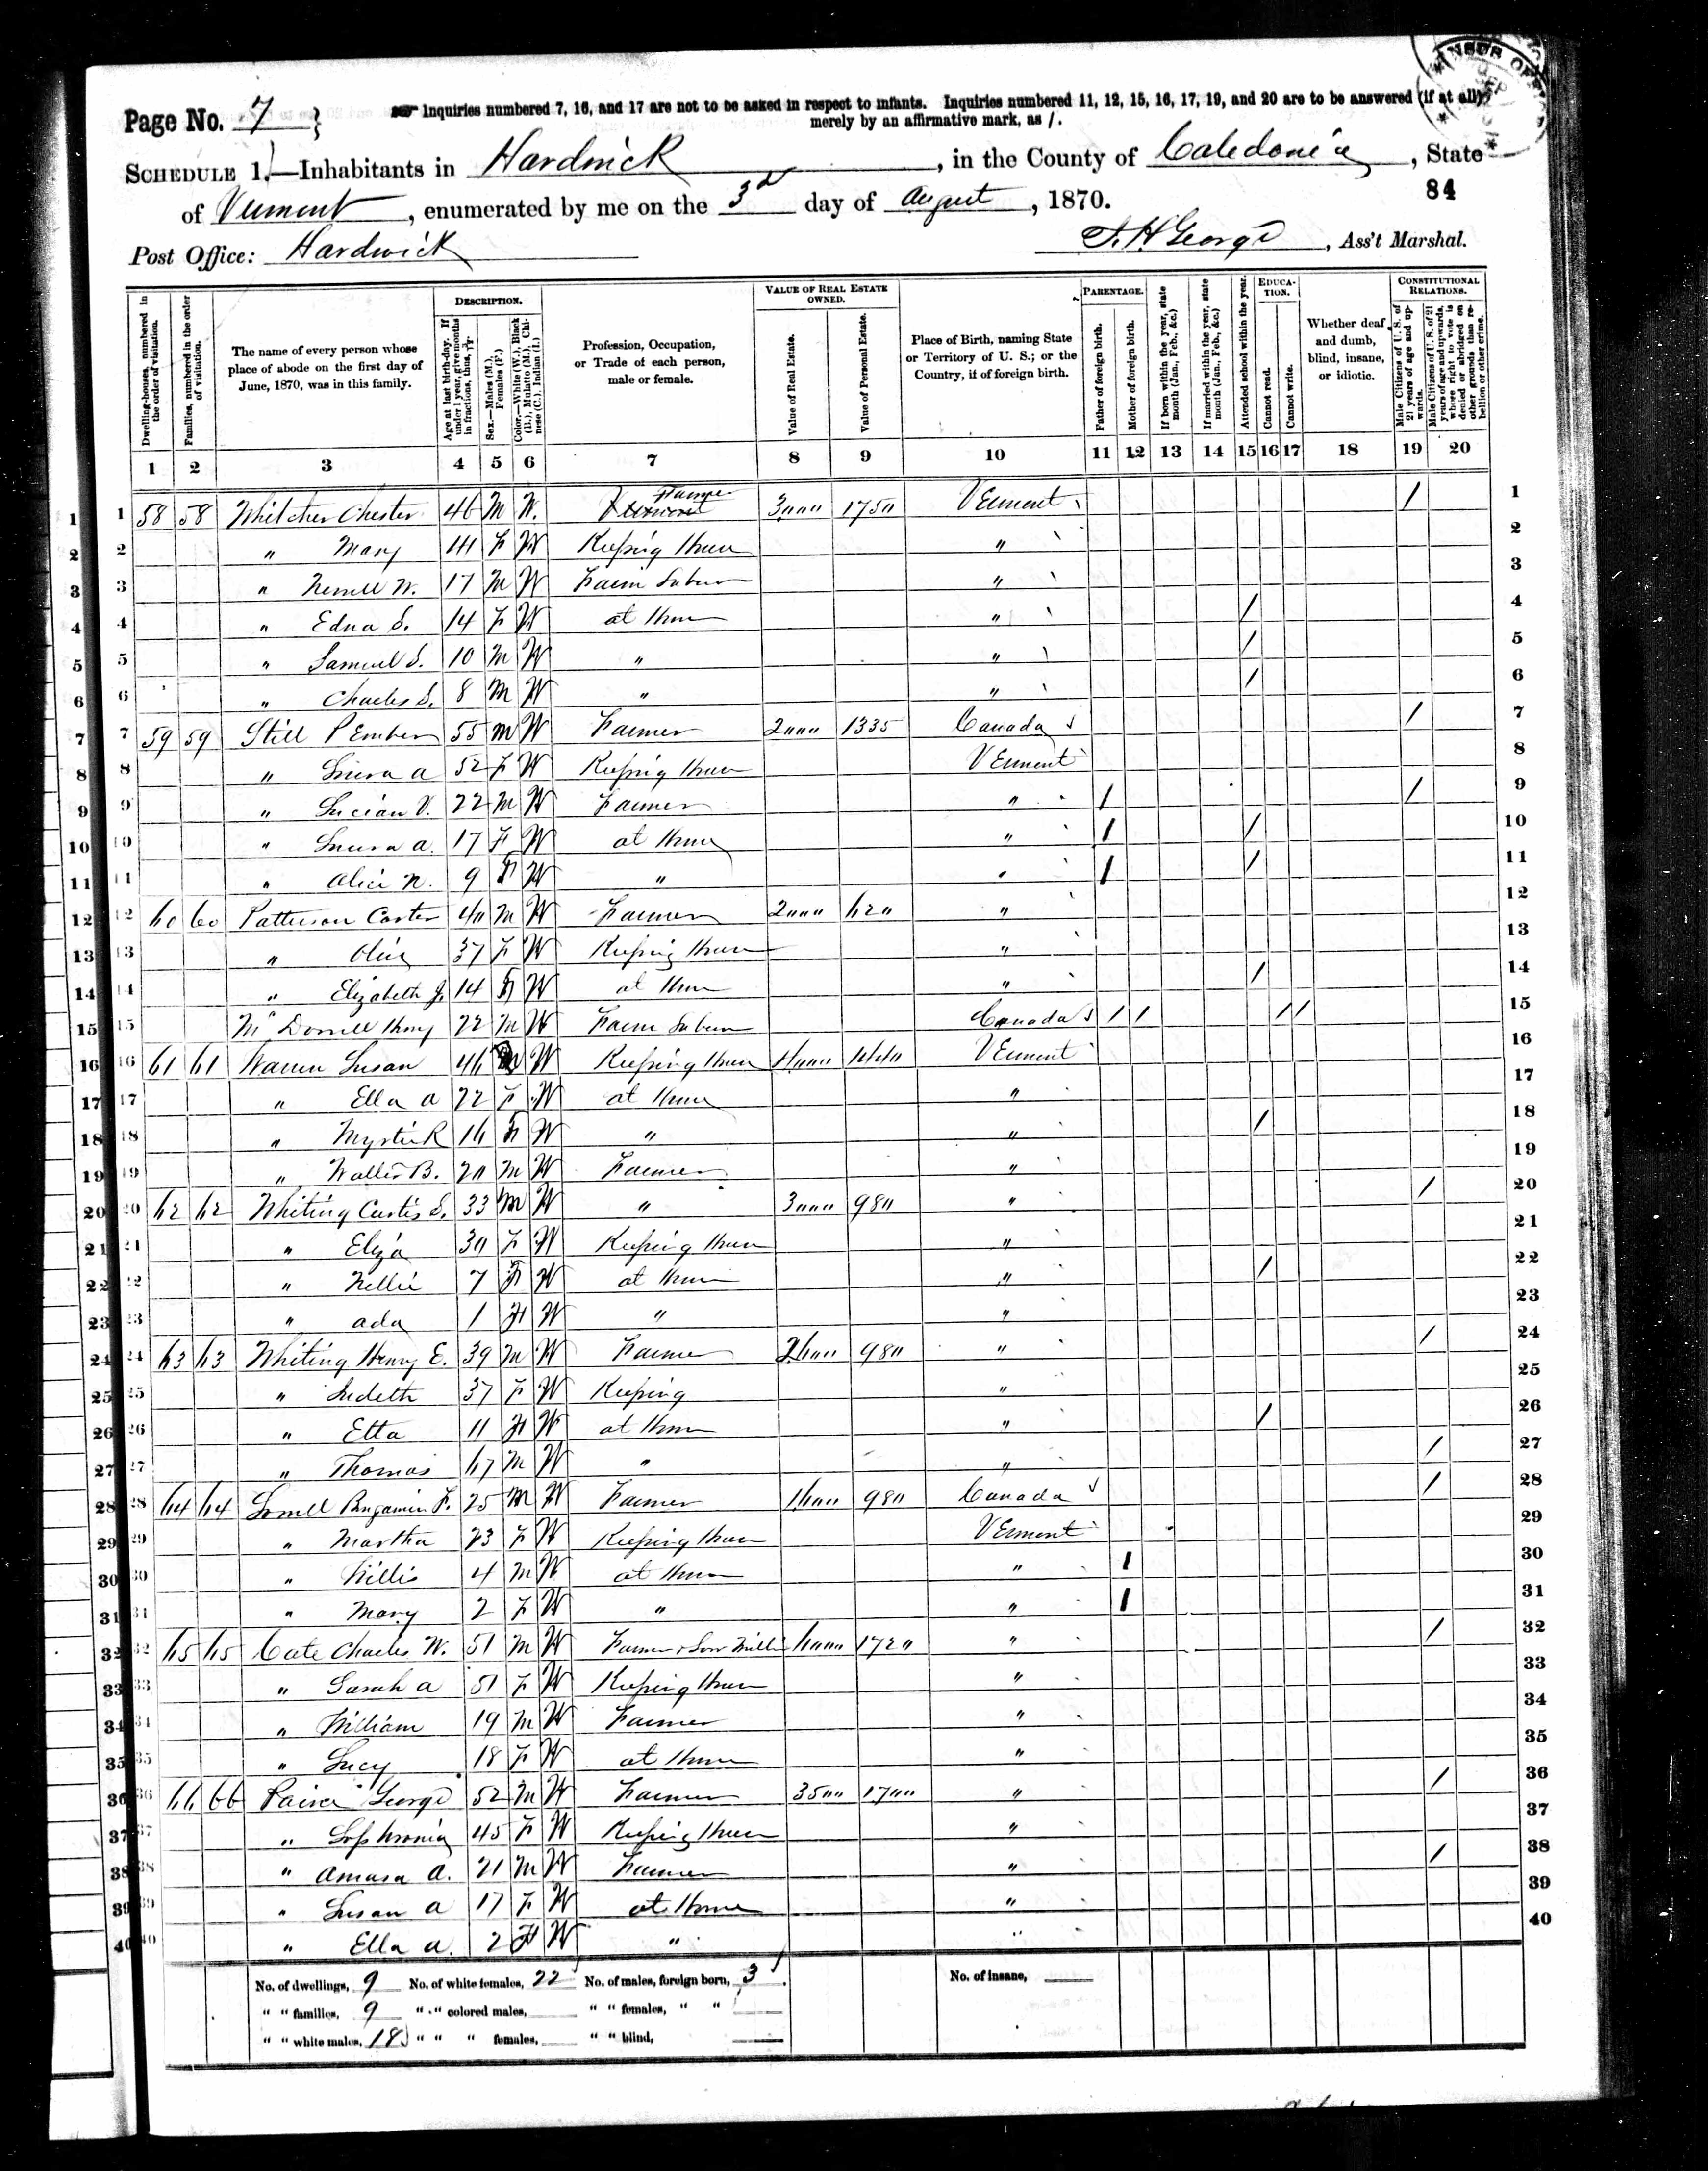 Page No. 7
Inquiries numbered 7, 16, and 17 are not to be asked in respect to infants. Inquiries numbered 11, 12, 15, 16, 17, 19, and 20 are to be answered (if at all)
merely by an affirmative mark, as /.
SCHEDULE 1.—Inhabitants in Hardwick, in the County of Caledonia, State
of Vermont, enumerated by me on the 3d day of August, 1870.
84
Post Office: Hardwick
George, Ass't Marshal.
Dwelling-houses, numbered in the order of visitation.
Families, numbered in the order of visitation.
The name of every person whose place of abode on the first day of June, 1870, was in this family.
DESCRIPTION.
Age at last birth-day. If under 1 year, give months in fractions, thus,
Sex.—Males (M.), Females (F.).
Color.—White (W.), Black (B.), Mulatto (M.), Chinese (C.), Indian (I.)
Profession, Occupation, or Trade of each person, male or female.
VALUE OF REAL ESTATE OWNED.
Value of Real Estate.
Value of Personal Estate.
Place of Birth, naming State or Territory of U. S.; or the Country, if of foreign birth.
PARENTAGE.
Father of foreign birth.
Mother of foreign birth.
If born within the year, state month (Jan., Feb., &c.)
If married within the year, state month (Jan., Feb., &c.)
Attended school within the year.
EDUCATION.
Cannot read.
Cannot write.
Whether deaf and dumb, blind, insane, or idiotic.
CONSTITUTIONAL RELATIONS.
Male Citizens of U. S. of 21 years of age and upwards.
Male Citizens of U. S. of 21 years of age and upwards, where right to vote is denied or abridged on other grounds than rebellion or other crime.
1 2 3 4 5 6 7 8 9 10 11 12 13 14 15 16 17 18 19 20
1 58 58 Whitcher Chester 46 M W. Farmer 3000 1750 Vermont / 1
2 " Mary 41 F W Keeping House " 2
3 " W. 17 M W Farm Labor " 3
4 " Edna S. 14 F W at Home " / 4
5 " Samuel S. 10 M W " " / 5
6 " Charles S. 8 M W " " / 6
7 59 59 Still P Ember 55 M W Farmer 2000 1335 Canada / 7
8 " a 52 F W Keeping House Vermont 8
9 " Lucian V. 22 M W Farmer " / / 9
10 " a. 17 F W at Home " / / 10
11 " Alice N. 9 F W " " / / 11
12 60 60 Patterson Carter 40 M W Farmer 2000 620 " 12
13 " Olive 37 F W Keeping House " 13
14 " Elizabeth J. 14 F W at Home " / 14
15 Mc Donell 22 M W Farm Labor Canada / / / / 15
16 61 61 Warren Susan 46 W Keeping House 4000 Vermont 16
17 " Ella A 22 F W at Home " 17
18 " Myrtie R 16 F W " " / 18
19 " Walter B. 20 M W Farmer " 19
20 62 62 Whiting Curtis S. 33 M W " 3000 980 " / 20
21 " Eliza 30 F W Keeping House " 21
22 " Nellie 7 F W at Home " / 22
23 " Ada 1 F W " " 23
24 63 63 Whiting Henry E. 39 M W Farmer 2600 980 " / 24
25 " Judeth 37 F W Keeping " 25
26 " Etta 11 F W at Home " / 26
27 " Thomas 67 M W " " / 27
28 64 64 Sorrell Benjamin F. 25 M W Farmer 1600 980 Canada / 28
29 " Martha 23 F W Keeping House Vermont 29
30 " Willis 4 M W at Home " / 30
31 " Mary 2 F W " " / 31
32 65 65 Cate Charles W. 51 M W Farmer & Saw Mill 6000 1720 " / 32
33 " Sarah A 51 F W Keeping House " 33
34 " William 19 M W Farmer " 34
35 " Lucy 18 F W at Home " 35
36 66 66 George 52 M W Farmer 3500 1700 " / 36
37 " Sophronia 45 F W Keeping House " 37
38 " Amasa A. 21 M W Farmer " / 38
39 " Susan A 17 F W at Home " 39
40 " Ella A. 2 F W " " 40
No. of dwellings, 9 No. of white females, 22 No. of males, foreign born, 3 No. of insane,
" " families, 9 " " colored males, " " females, " "
" " white males, 18 " " " females, " " blind,